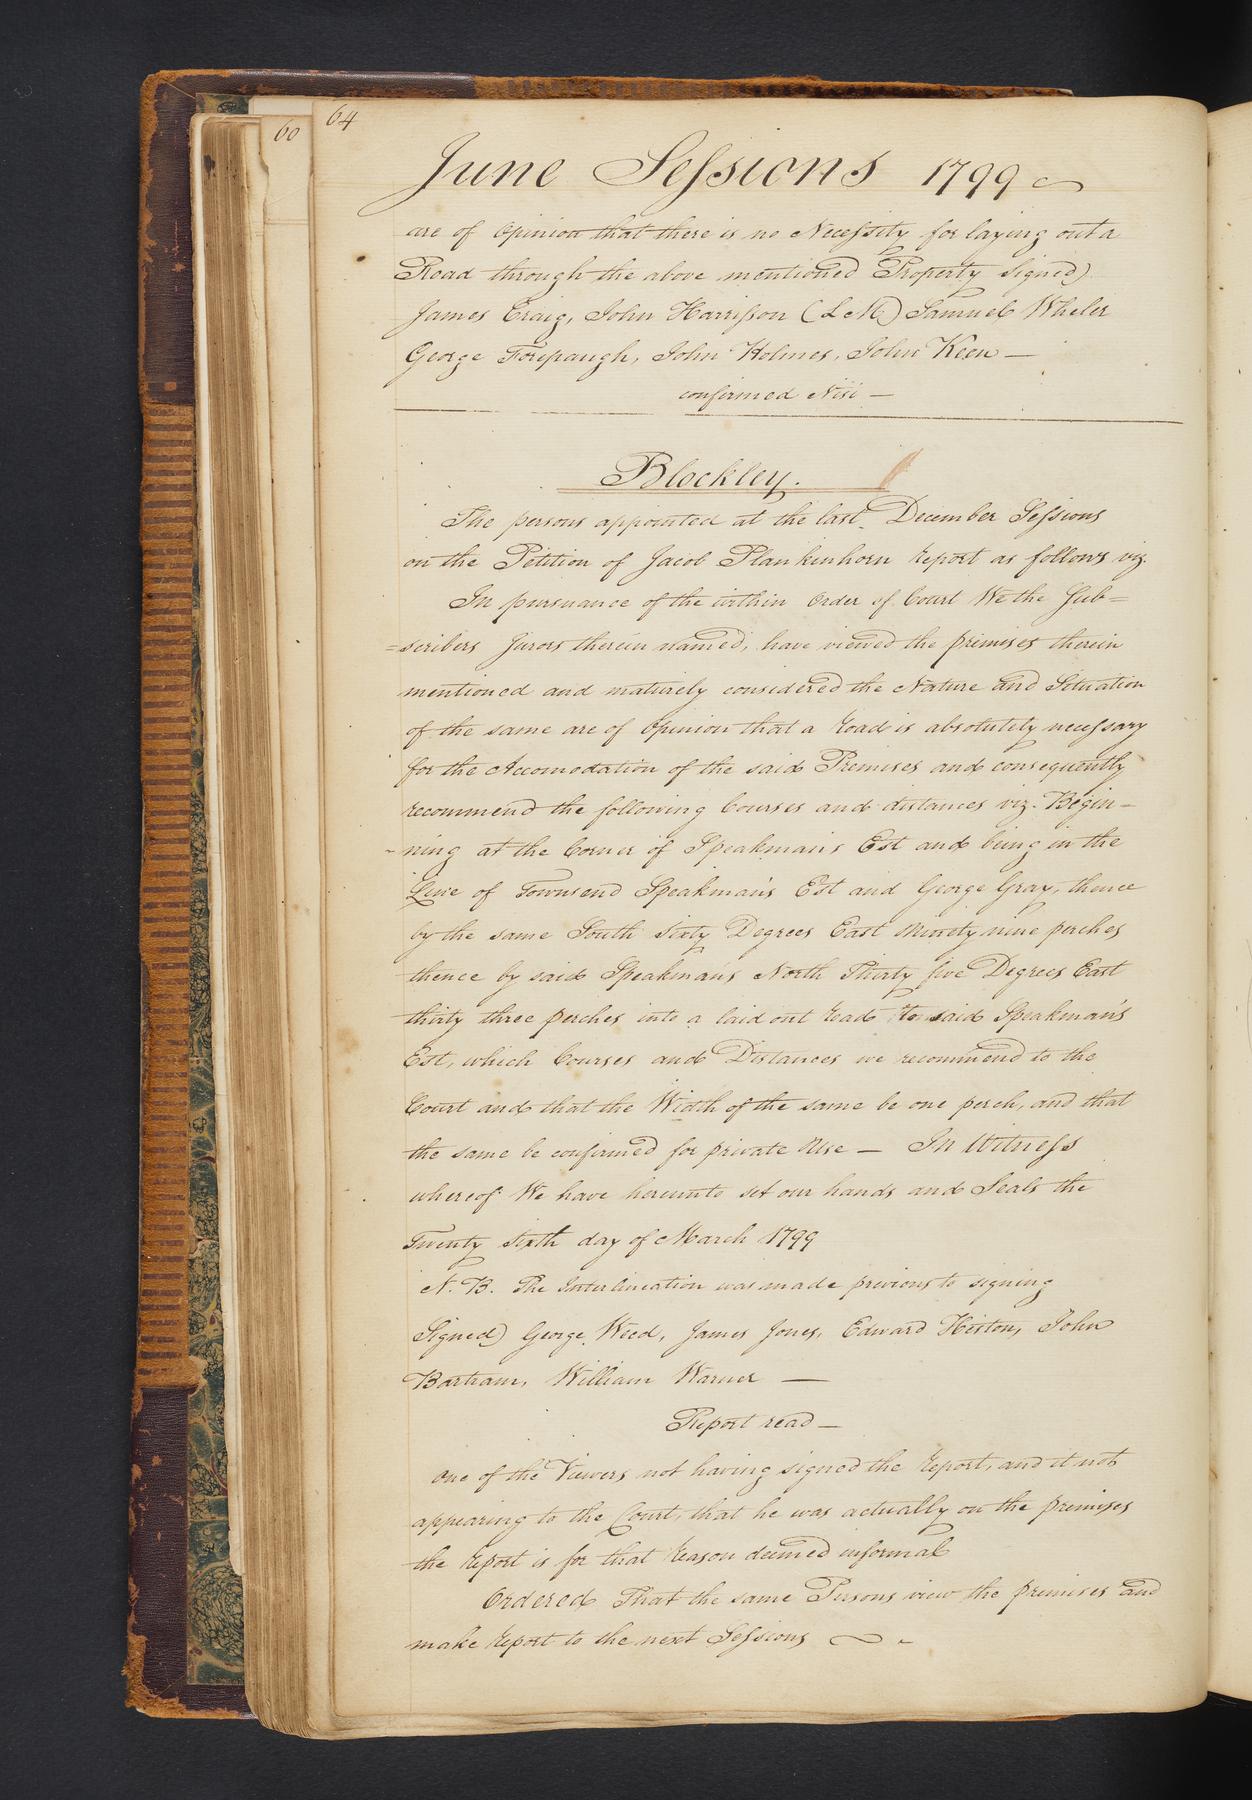 60
64
June Sessions 1799
are of Opinion that there is no Necessity for laying out a
Road through the above mentioned Property Signed)
James Craig, John Harrison (LM) Samuel Wheler
George Forepaugh, John Holmes, John Keen —
confirmed Nisi —
Blockley.
The persons appointed at the last December Sessions
on the Petition of Jacob Plankinhorn report as follows viz.
In pursuance of the within Order of Court We the Sub=
=scribers Jurors therein named, have viewed the premises therein
mentioned and maturely considered the Nature and Situation
of the same are of Opinion that a road is absolutely necessary
for the Accomodation of the said Premises and consequently
recommend the following Courses and distances viz. Begin-
-ning at the Corner of Speakman's Est and being in the
Line of Townsend Speakman's Est and George Gray, thence
by the same South Sixty Degrees East Ninety nine perches
thence by said Speakman's North Thirty five Degrees East
thirty three perches into a laid out road to said Speakman's
Est, which Courses and Distances we recommend to the
Court and that the Width of the same be one perch, and that
the same be confirmed for private Use — In Witness
whereof We have hereunto set our hands and Seals the
Twenty Sixth day of March 1799
N. B. The Interlineation was made previous to signing
Signed) George Weed, James Jones, Edward Heston, John
Bartram, William Warner —
Report read —
One of the Viewers not having signed the report, and it not
appearing to the Court, that he was actually on the premises
the report is for that reason deemed informal
Ordered That the same Persons view the premises and
make report to the next Sessions